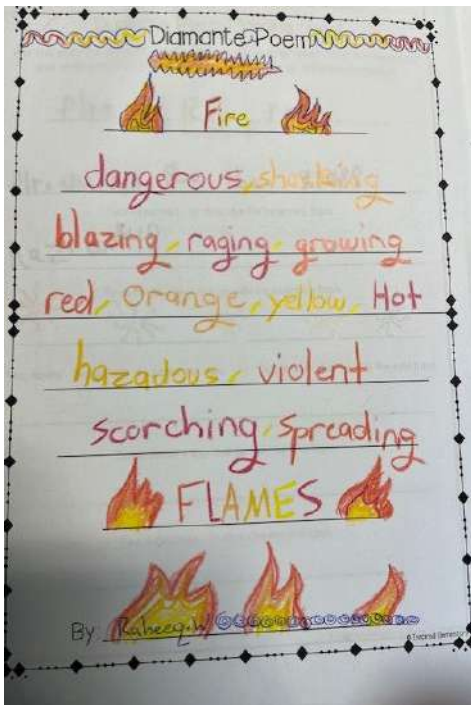 Diamante Poem
Fire
dangerous, shocking
blazing, raging, growing
red, Orange, yellow, Hot
hazadous, violent
scorching, spreading
FLAMES
By: Raheeq.h